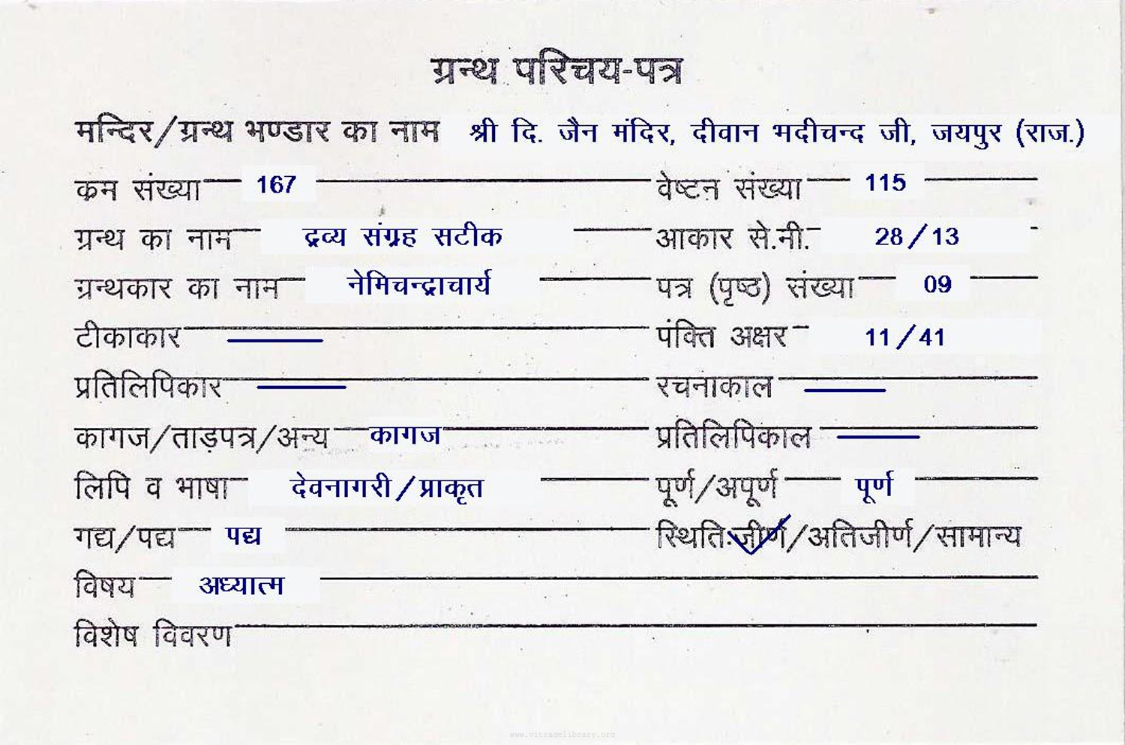 ग्रन्थ परिचय-पत्र
मन्दिर/ग्रन्थ भण्डार का नाम श्री दि. जैन मंदिर, दीवान भदीचन्द जी, जयपुर (राज.)
क्रम संख्या 167 वेष्टन संख्या 115
ग्रन्थ का नाम द्रव्य संग्रह सटीक आकार से.मी. 28/13
ग्रन्थकार का नाम नेमिचन्द्राचार्य पत्र (पृष्ठ) संख्या 09
टीकाकार — पंक्ति अक्षर 11/41
प्रतिलिपिकार — रचनाकाल —
कागज/ताड़पत्र/अन्य कागज प्रतिलिपिकाल —
लिपि व भाषा देवनागरी/प्राकृत पूर्ण/अपूर्ण पूर्ण
गद्य/पद्य पद्य स्थितिःजीर्ण/अतिजीर्ण/सामान्य
विषय अध्यात्म
विशेष विवरण